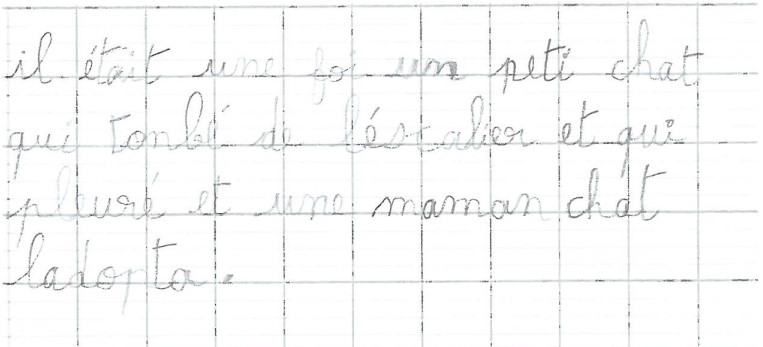 il était une foi un peti chat
qui tonbé de l'éscalier et qui
pleuré et une maman chat
ladopta.